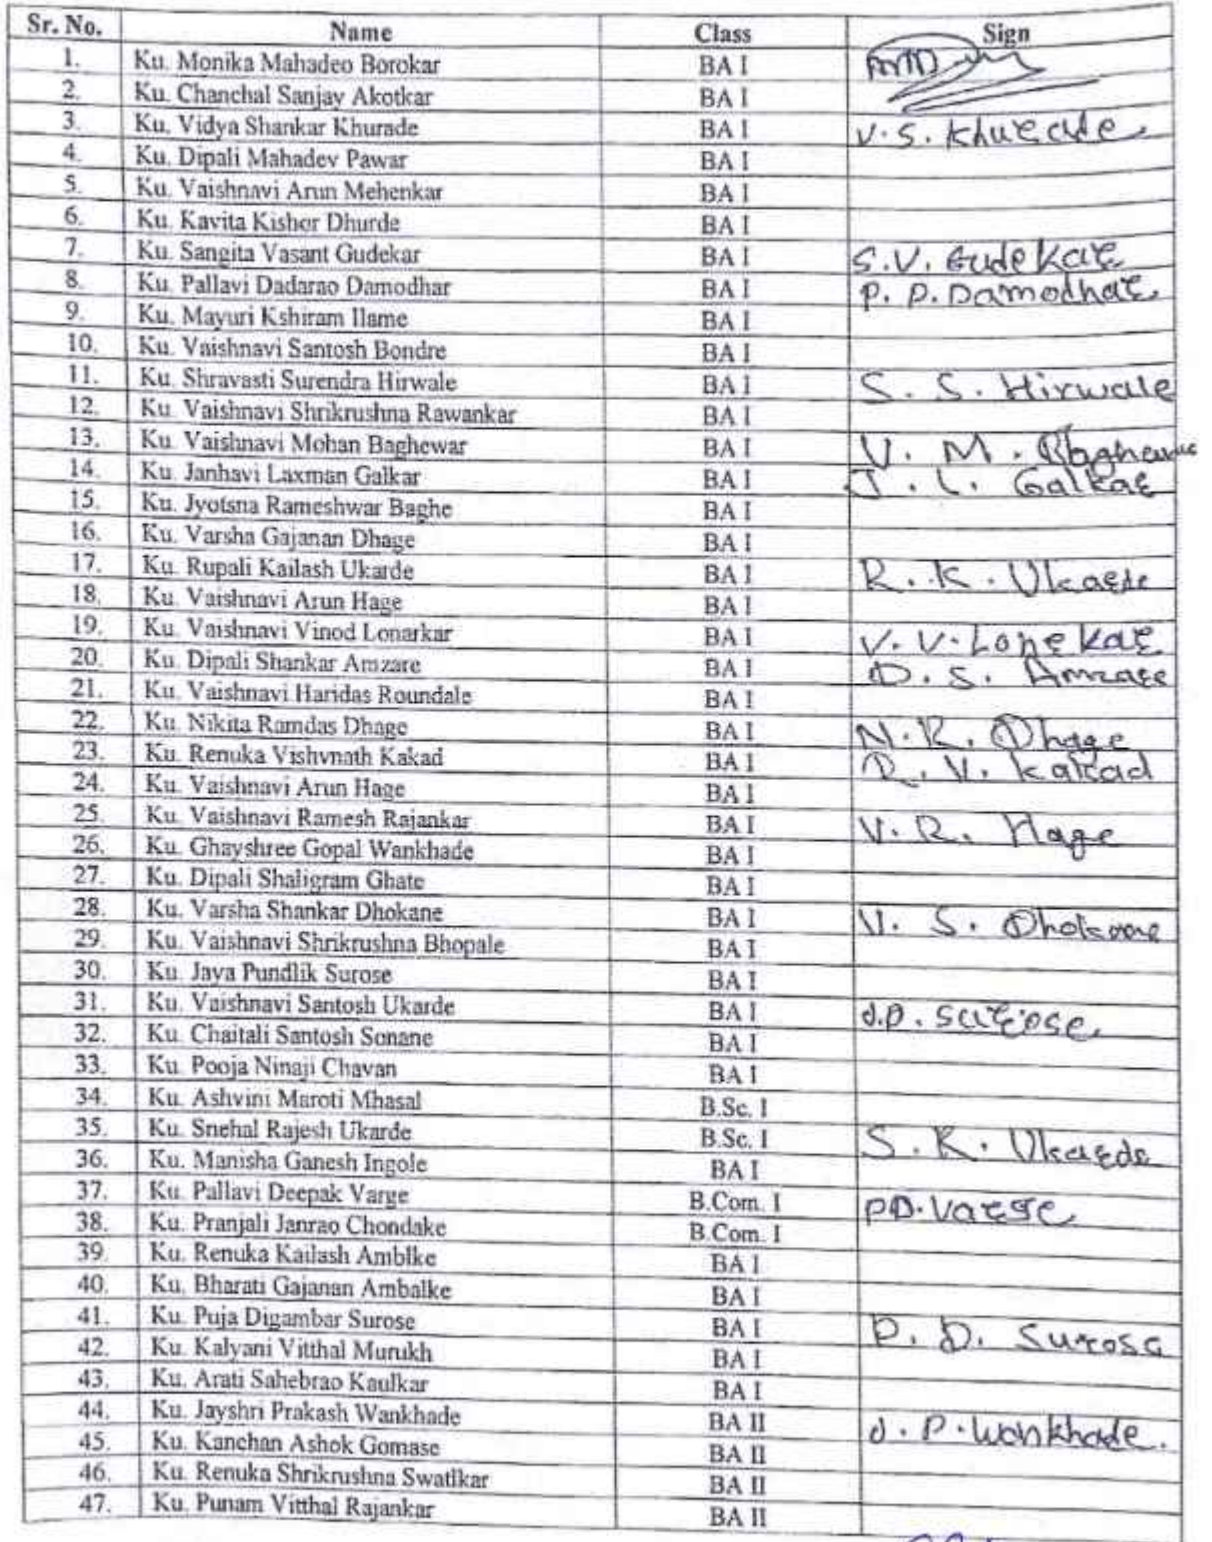 Sr. No. Name Class Sign
1. Ku. Monika Mahadeo Borokar BA I
2. Ku. Chanchal Sanjay Akotkar BA I
3. Ku. Vidya Shankar Khurade BA I V. S. Khurade
4. Ku. Dipali Mahadev Pawar BA I
5. Ku. Vaishnavi Arun Mehenkar BA I
6. Ku. Kavita Kishor Dhurde BA I
7. Ku. Sangita Vasant Gudekar BA I S. V. Gudekar
8. Ku. Pallavi Dadarao Damodhar BA I P. D. Damodhar
9. Ku. Mayuri Kshiram Ilame BA I
10. Ku. Vaishnavi Santosh Bondre BA I
11. Ku. Shravasti Surendra Hirwale BA I S. S. Hirwale
12. Ku. Vaishnavi Shrikrushna Rawankar BA I
13. Ku. Vaishnavi Mohan Baghewar BA I V. M.
14. Ku. Janhavi Laxman Galkar BA I J. L. Galkar
15. Ku. Jyotsna Rameshwar Baghe BA I
16. Ku. Varsha Gajanan Dhage BA I
17. Ku. Rupali Kailash Ukarde BA I R. K. Ukarde
18. Ku. Vaishnavi Arun Hage BA I
19. Ku. Vaishnavi Vinod Lonarkar BA I V. V. Lonekar
20. Ku. Dipali Shankar Amzare BA I D. S. Amzare
21. Ku. Vaishnavi Haridas Roundale BA I
22. Ku. Nikita Ramdas Dhage BA I N. R. Dhage
23. Ku. Renuka Vishvnath Kakad BA I R. V. Kakad
24. Ku. Vaishnavi Arun Hage BA I
25. Ku. Vaishnavi Ramesh Rajankar BA I V. R. Hage
26. Ku. Ghayshree Gopal Wankhade BA I
27. Ku. Dipali Shaligram Ghate BA I
28. Ku. Varsha Shankar Dhokane BA I V. S. Dhokane
29. Ku. Vaishnavi Shrikrushna Bhopale BA I
30. Ku. Jaya Pundlik Surose BA I
31. Ku. Vaishnavi Santosh Ukarde BA I J.P. Surose
32. Ku. Chaitali Santosh Sonane BA I
33. Ku. Pooja Ninaji Chavan BA I
34. Ku. Ashvini Maroti Mhasal B.Sc. I
35. Ku. Snehal Rajesh Ukarde B.Sc. I S. R. Ukarde
36. Ku. Manisha Ganesh Ingole BA I
37. Ku. Pallavi Deepak Varge B.Com. I P.D. Varge
38. Ku. Pranjali Janrao Chondake B.Com. I
39. Ku. Renuka Kailash Amblke BA I
40. Ku. Bharati Gajanan Ambalke BA I
41. Ku. Puja Digambar Surose BA I P. D. Surose
42. Ku. Kalyani Vitthal Murukh BA I
43. Ku. Arati Sahebrao Kaulkar BA I
44. Ku. Jayshri Prakash Wankhade BA II J. P. Wankhade.
45. Ku. Kanchan Ashok Gomase BA II
46. Ku. Renuka Shrikrushna Swatlkar BA II
47. Ku. Punam Vitthal Rajankar BA II